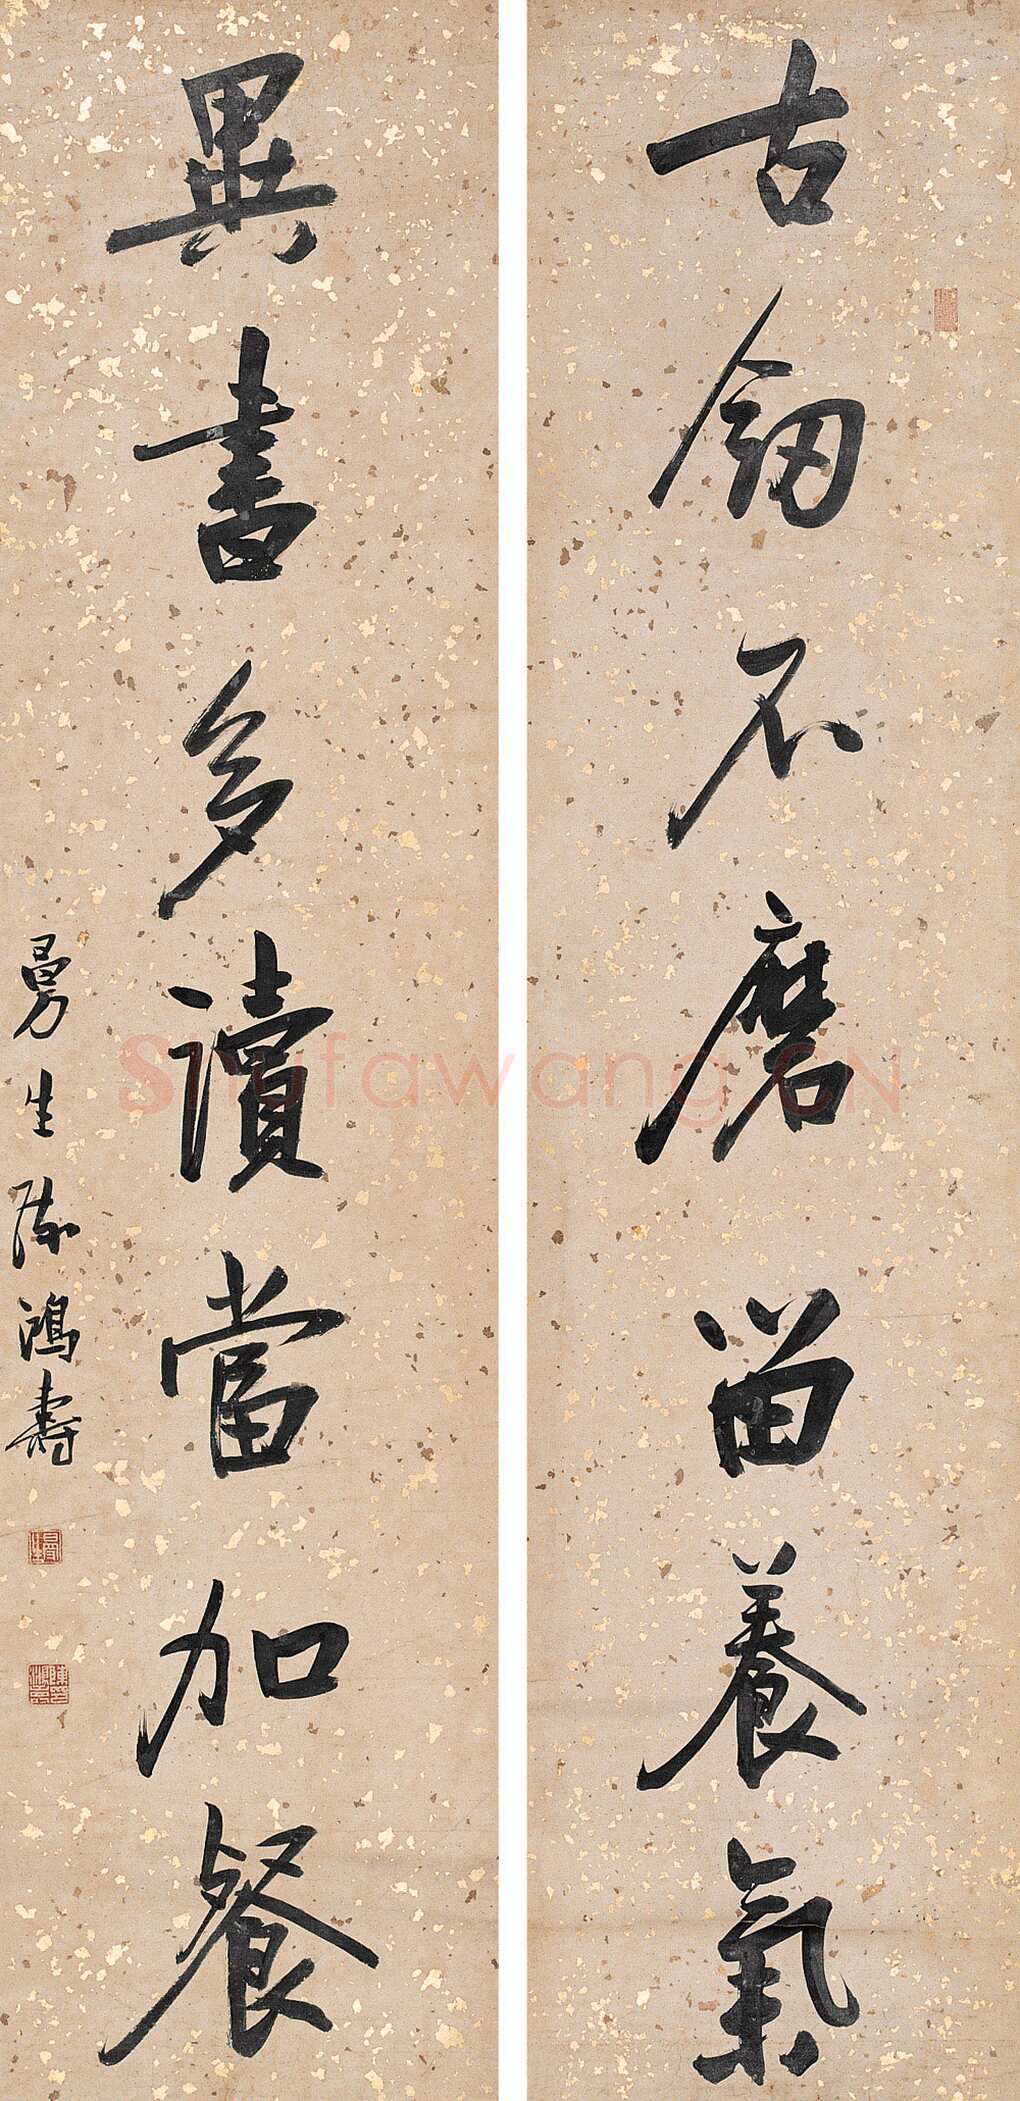 古劒不磨留養氣
異書多讀當加餐
曼生陳鴻壽
曼生
陳鴻壽
Shufawang.CN